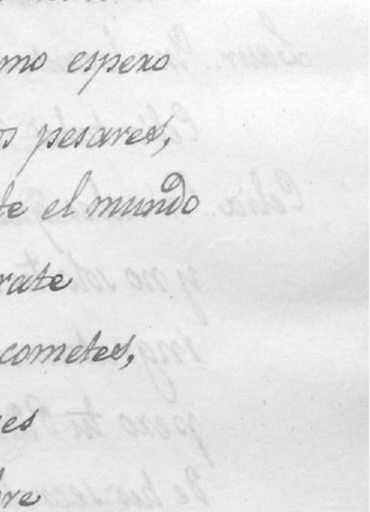 mo espero
os pesares,
te el mundo
rate
cometes,
es
bre